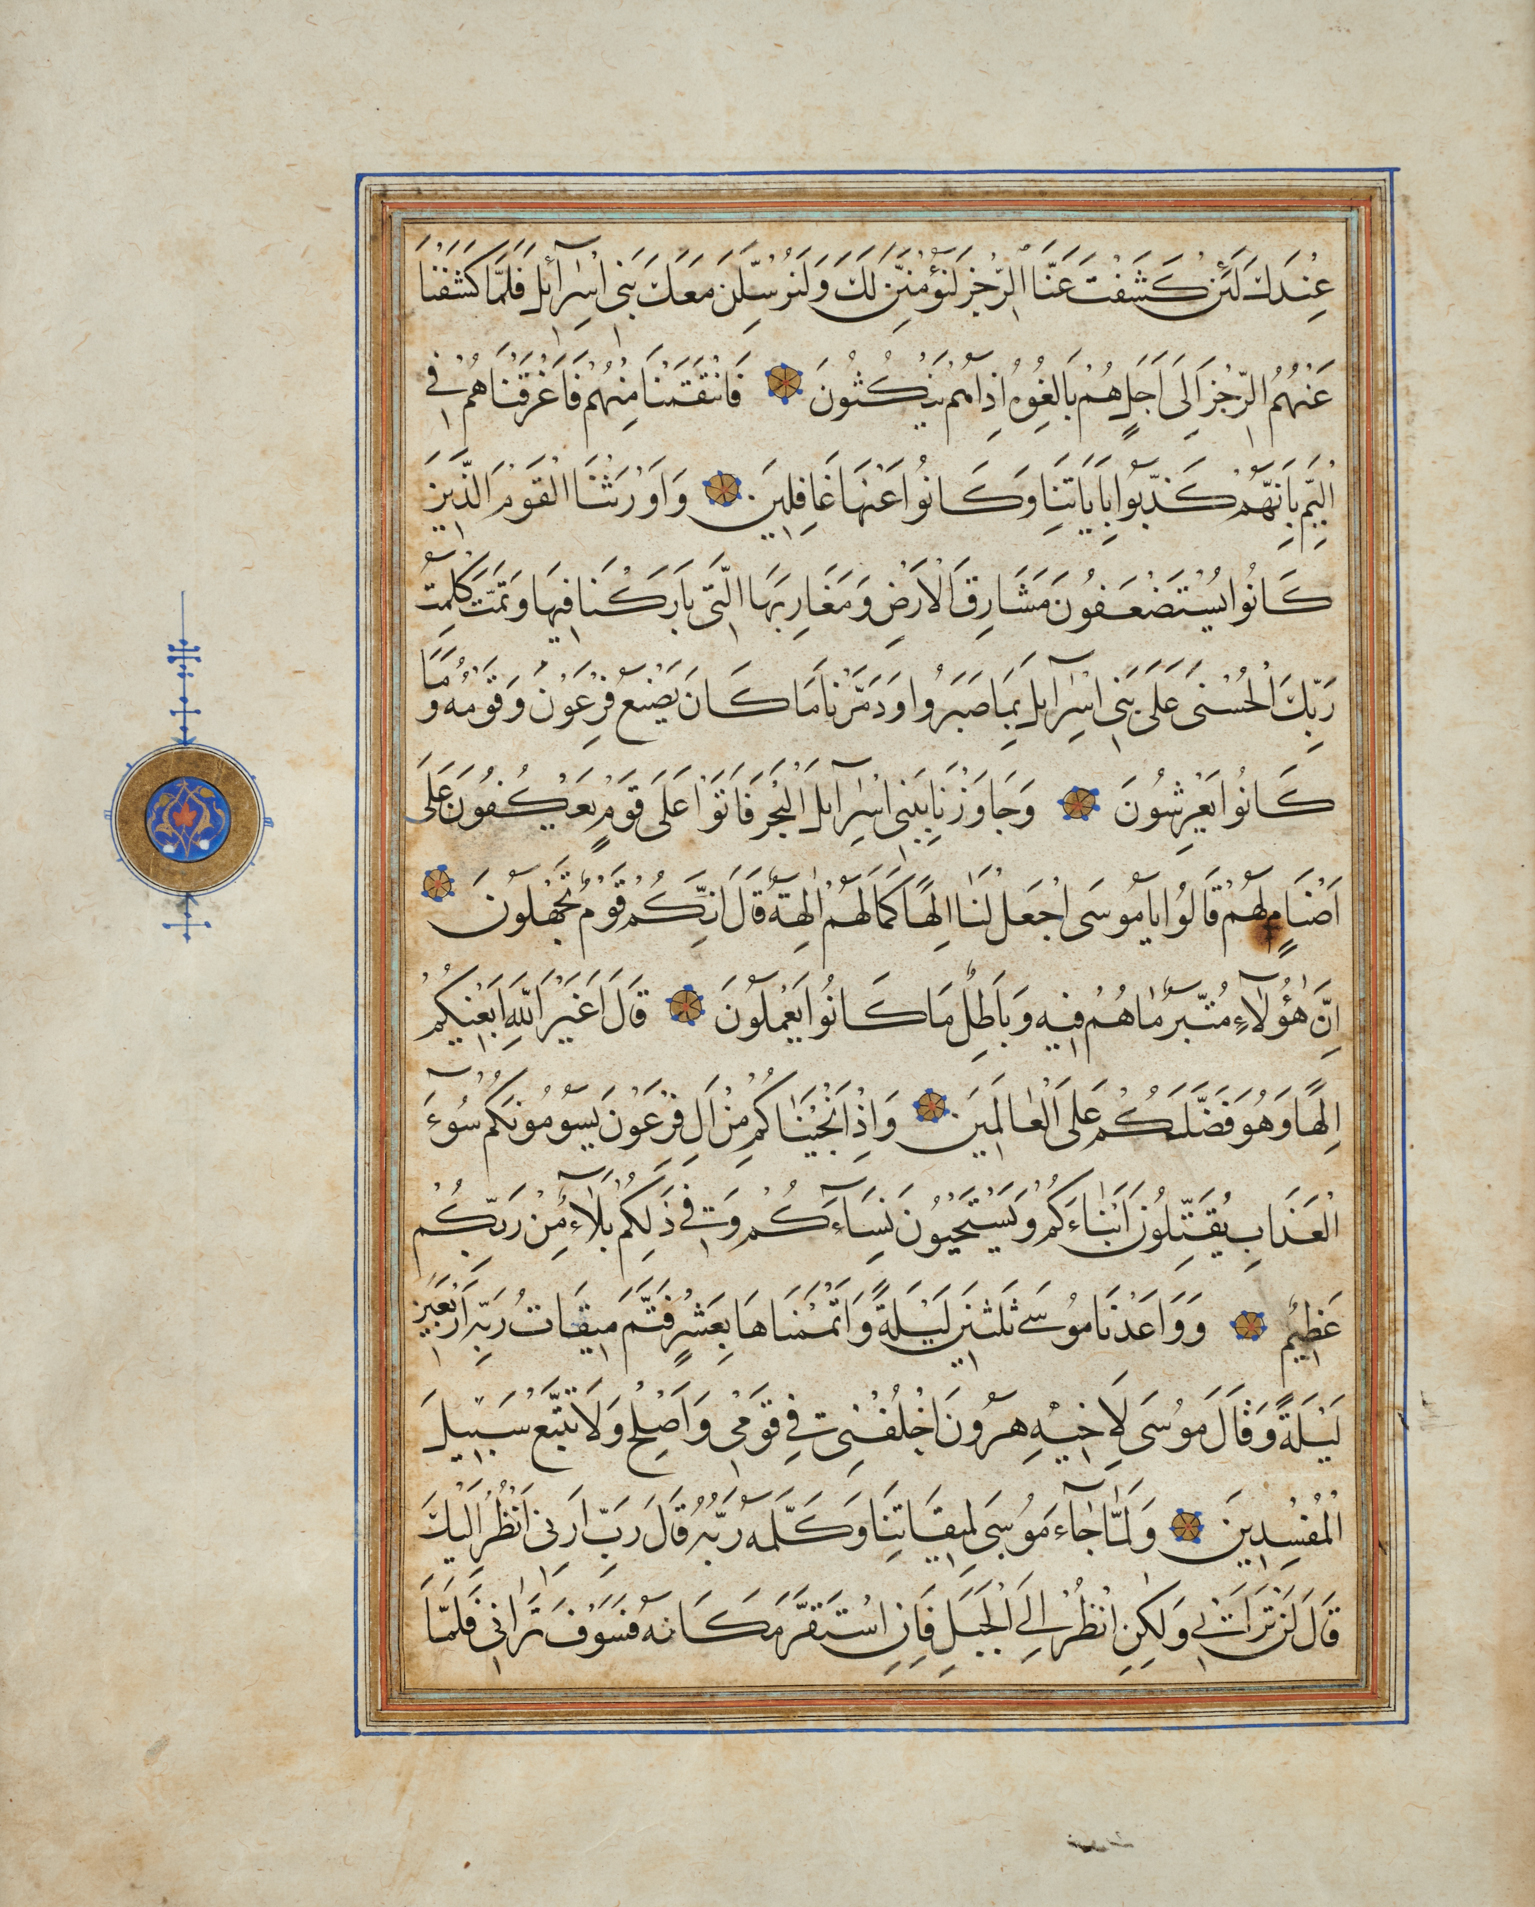 عِنْدَكَ لَئِنْ كَشَفْتَ عَنَّا الرِّجْزَ لَنُؤْمِنَنَّ لَكَ وَلَنُرْسِلَنَّ مَعَكَ بَنِي اِسْرَآئِلَ فَلَمَّا كَشَفْنَا
عَنْهُمُ الرِّجْزَ اِلَى اَجَلٍ هُمْ بَالِغُوهُ اِذَا هُمْ يَنْكُثُونَ فَانْتَقَمْنَا مِنْهُمْ فَاَغْرَقْنَاهُمْ فِي
الْيَمِّ بِاَنَّهُمْ كَذَّبُوا بِاَيَاتِنَا وَكَانُوا عَنْهَا غَافِلِينَ وَاَوْرَثْنَا الْقَوْمَ الَّذِينَ
كَانُوا يُسْتَضْعَفُونَ مَشَارِقَ الْاَرْضِ وَمَغَارِبَهَا الَّتِي بَارَكْنَا فِيهَا وَتَمَّتْ كَلِمَتُ
رَبِّكَ الْحُسْنَى عَلَى بَنِي اِسْرَآئِلَ بِمَا صَبَرُوا وَدَمَّرْنَا مَا كَانَ يَصْنَعُ فِرْعَوْنُ وَقَوْمُهُ وَمَا
كَانُوا يَعْرِشُونَ وَجَاوَزْنَا بِبَنِي اِسْرَآئِلَ الْبَحْرَ فَاَتَوْا عَلَى قَوْمٍ يَعْكُفُونَ عَلَى
اَصْنَامٍ لَهُمْ قَالُوا يَا مُوسَى اجْعَلْ لَنَا اِلٰهًا كَمَا لَهُمْ اٰلِهَةٌ قَالَ اِنَّكُمْ قَوْمٌ تَجْهَلُونَ
اِنَّ هٰؤُلَآءِ مُتَبَّرٌ مَا هُمْ فِيهِ وَبَاطِلٌ مَا كَانُوا يَعْمَلُونَ قَالَ اَغَيْرَ اللّٰهِ اَبْغِيكُمْ
اِلٰهًا وَهُوَ فَضَّلَكُمْ عَلَى الْعَالَمِينَ وَاِذْ اَنْجَيْنَاكُمْ مِنْ اٰلِ فِرْعَوْنَ يَسُومُونَكُمْ سُوٓءَ
الْعَذَابِ يُقَتِّلُونَ اَبْنَاءَكُمْ وَيَسْتَحْيُونَ نِسَآءَكُمْ وَفِي ذَلِكُمْ بَلَآءٌ مِنْ رَبِّكُمْ
عَظِيمٌ وَوَاعَدْنَا مُوسَى ثَلٰثِينَ لَيْلَةً وَاَتْمَمْنَاهَا بِعَشْرٍ فَتَمَّ مِيقَاتُ رَبِّهِ اَرْبَعِينَ
لَيْلَةً وَقَالَ مُوسَى لِاَخِيهِ هٰرُونَ اخْلُفْنِي فِي قَوْمِي وَاَصْلِحْ وَلَا تَتَّبِعْ سَبِيلَ
الْمُفْسِدِينَ وَلَمَّا جَآءَ مُوسَى لِمِيقَاتِنَا وَكَلَّمَهُ رَبُّهُ قَالَ رَبِّ اَرِنِي اَنْظُرْ اِلَيْكَ
قَالَ لَنْ تَرَانِي وَلَكِنِ انْظُرْ اِلَى الْجَبَلِ فَاِنِ اسْتَقَرَّ مَكَانَهُ فَسَوْفَ تَرَانِي فَلَمَّا